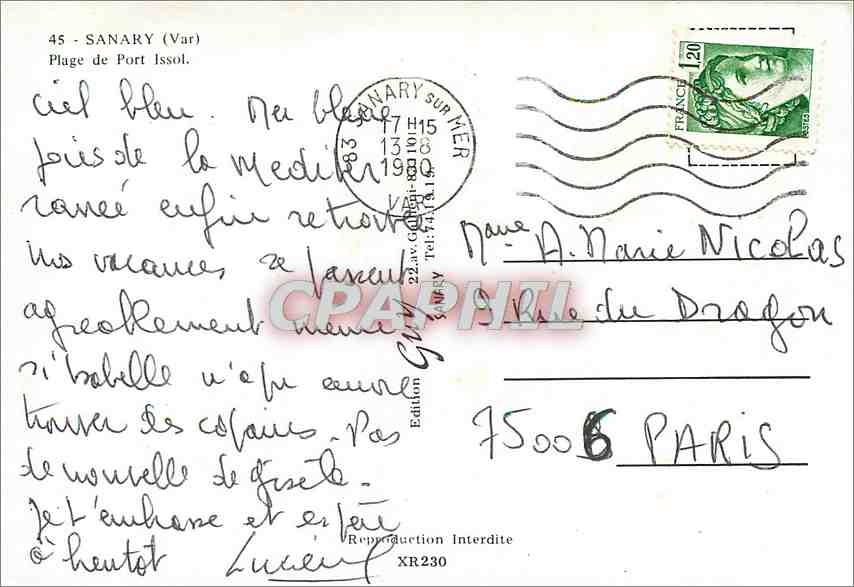 45 - SANARY (Var)
Plage de Port Issol.
Ciel bleu. Mer bleue
joies de la Mediter
ranée enfin retrouvée
nos vacances se passent
agreablement meme
si Isabelle n'a pu encore
trouver des copains. Pas
de nouvelle de Gisèle.
Je t'embrasse et espère
à bientot Lucien
83 SANARY SUR MER
17 H15
13-8
1980
VAR
Edition Guy
22.av.
SANARY Tel: 74.19.19
FRANCE
1,20
Mme A. Marie NICOLAS
9 Rue du Dragon
75006 PARIS
CPAPHIL
Reproduction Interdite
XR230